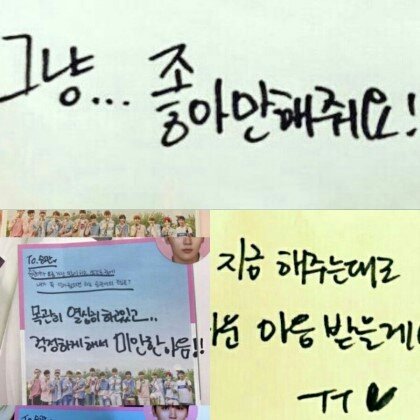 그냥... 좋아만해줘요!
To. 승관
묵찬히 열심히 하고있고...
걱정하게해서 미안한마음!!
지금 해주는대로
마음 받을게